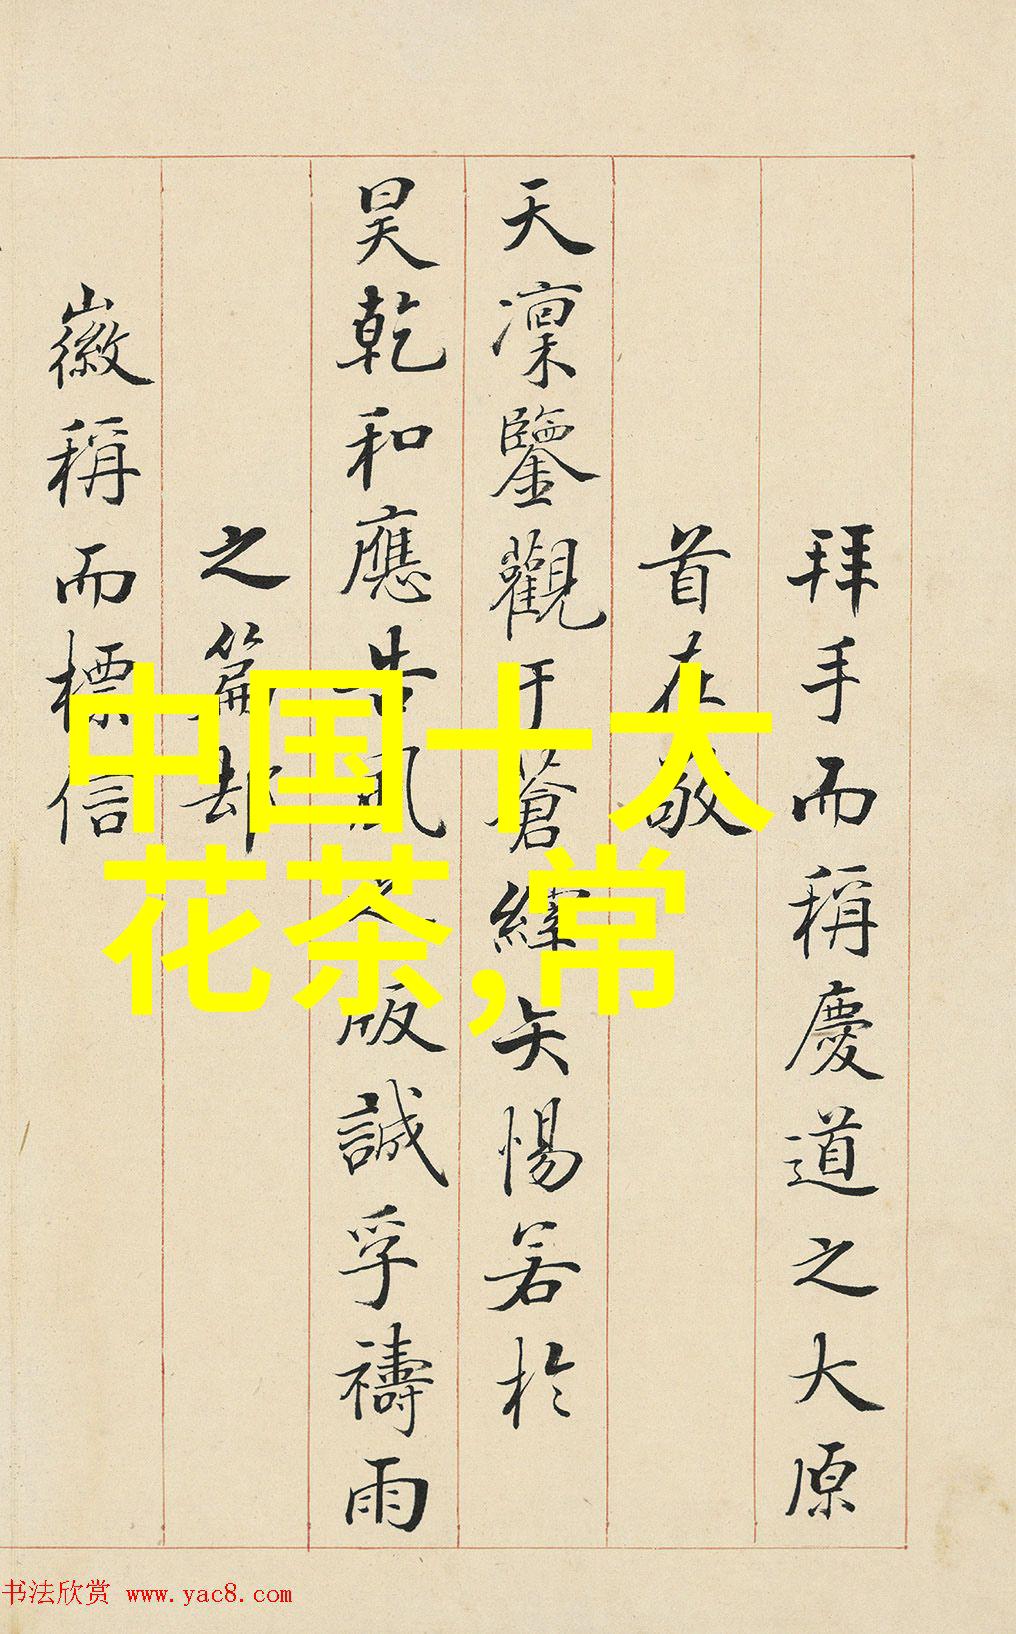 拜手而稱慶道之大原
首在敬
天凜鑒觀于蒼緯矢惕若於
昊乾和應告風之版誠孚禱雨
之篇却
徽稱而標信
中国十大
花茶,常
书法欣赏 www.yac8.com